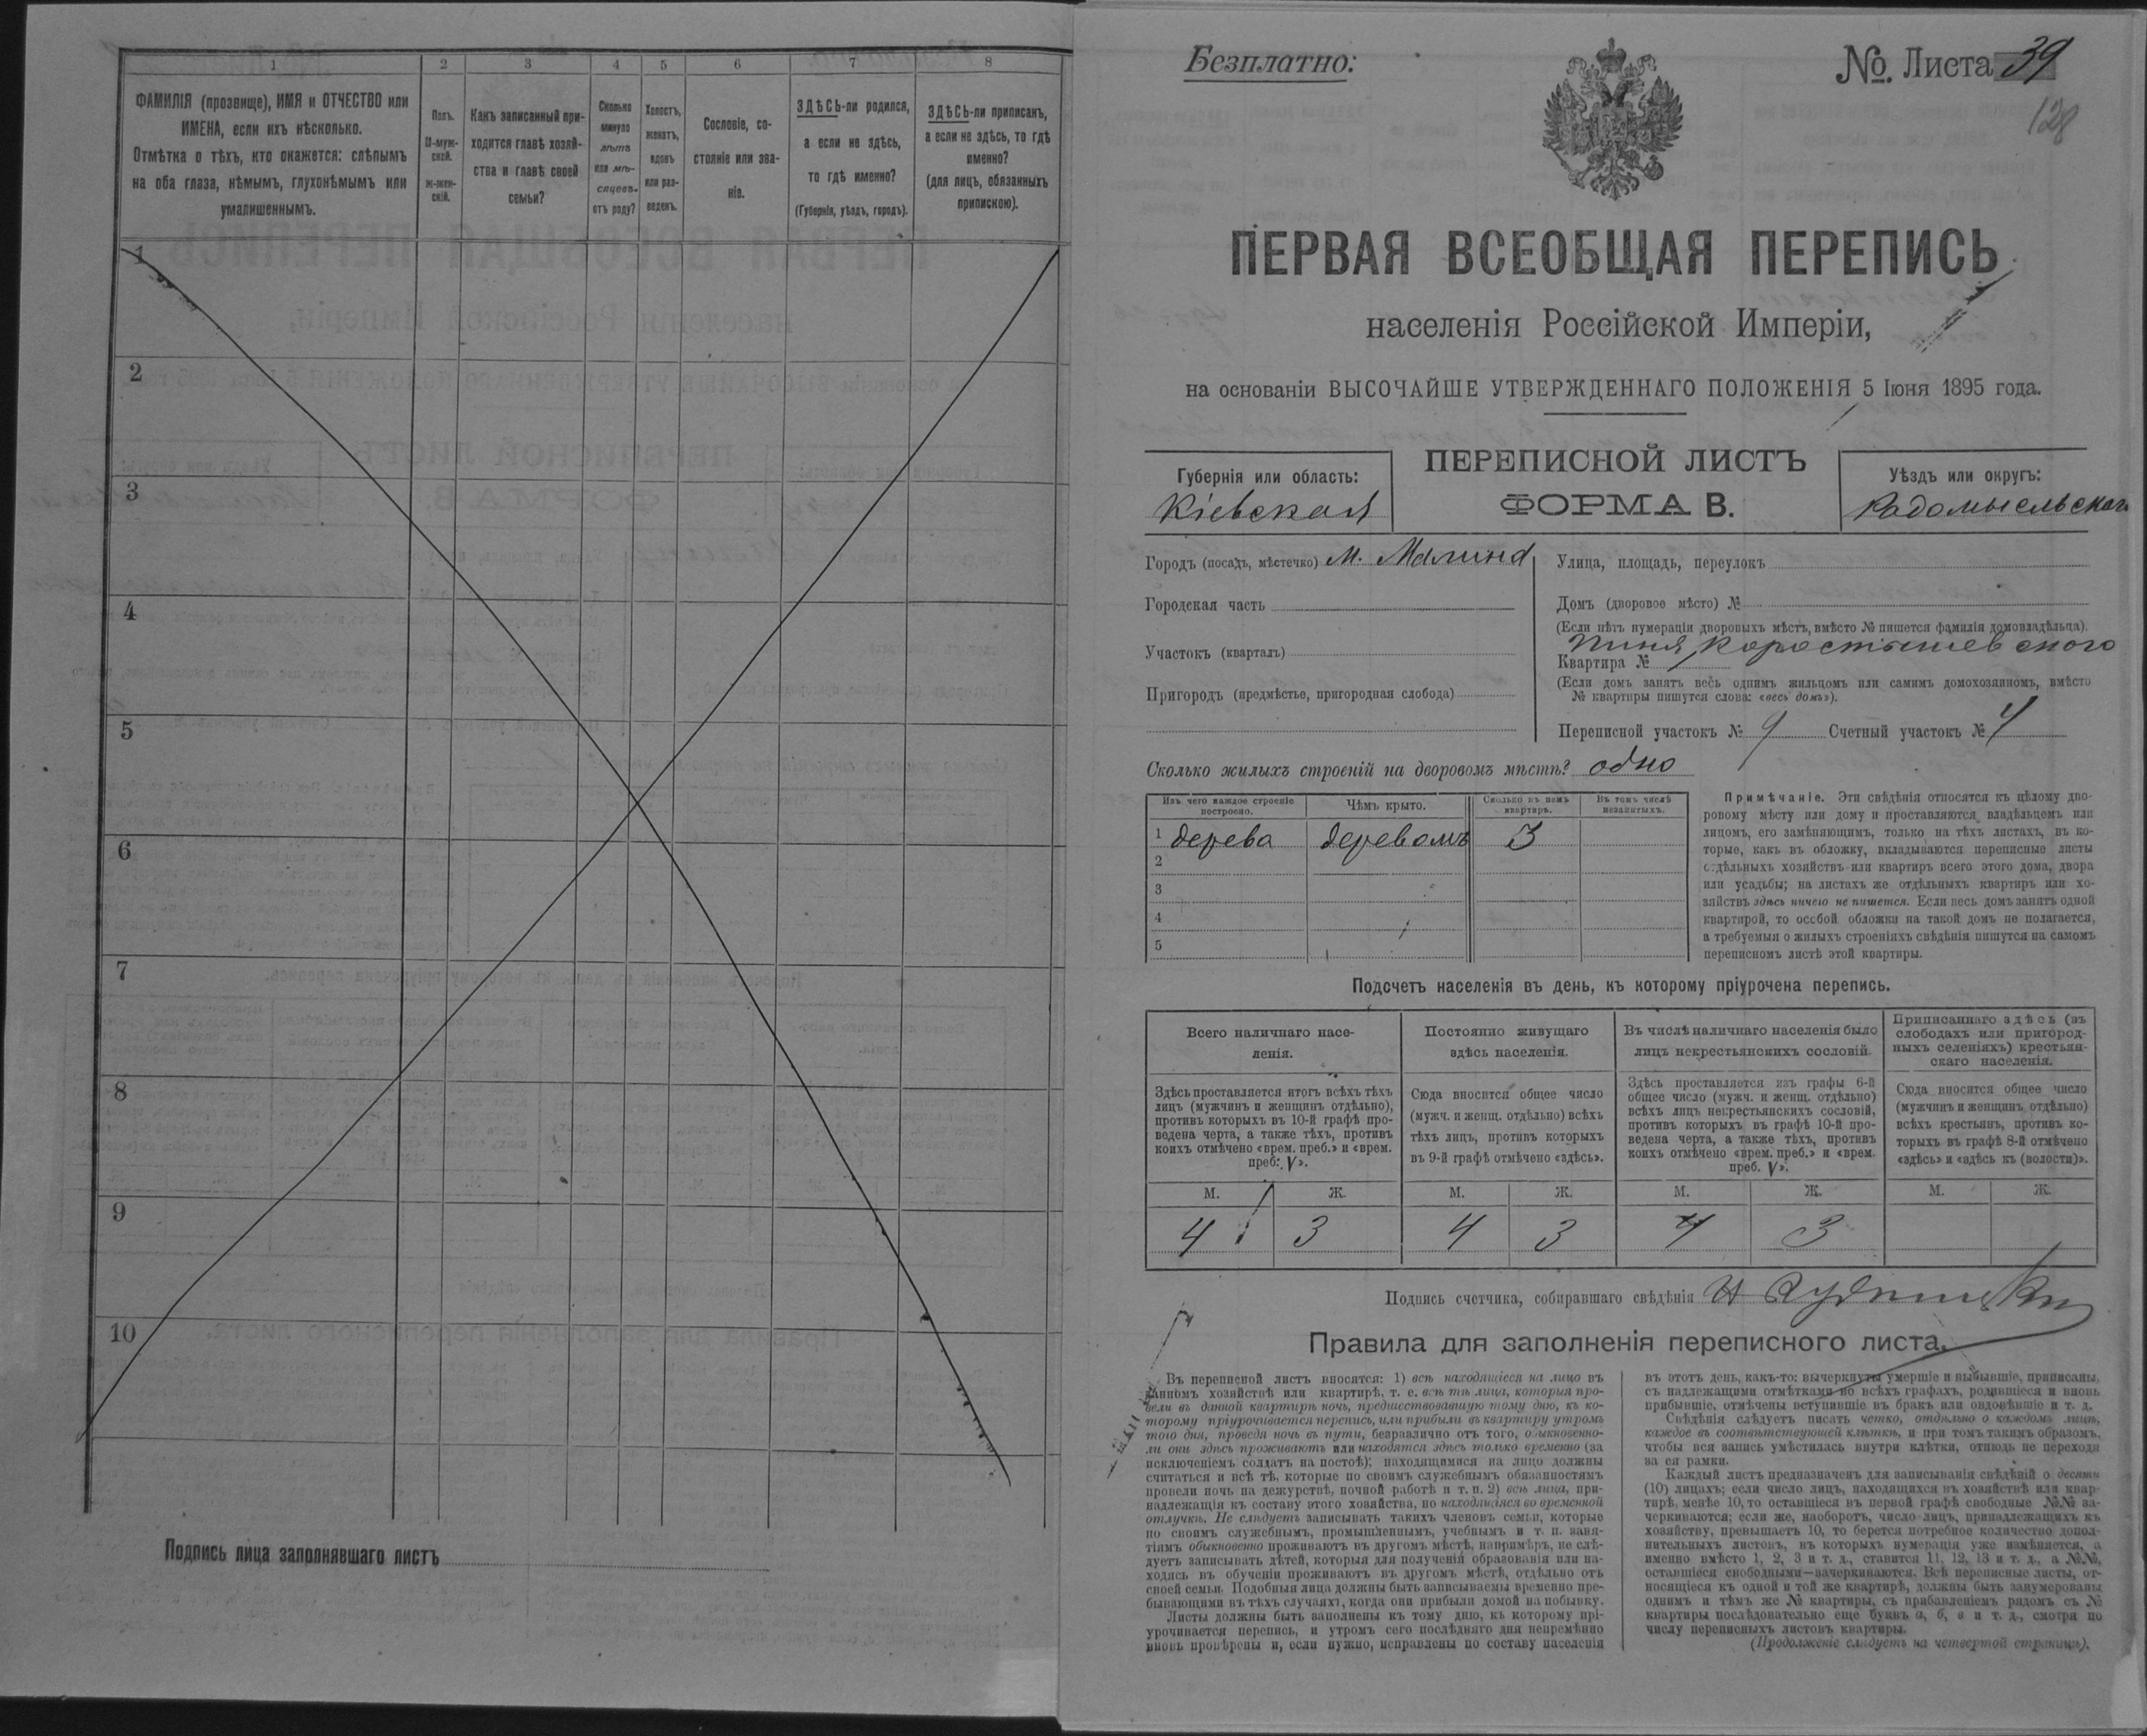 1 2 3 4 5 6 7 8
ФАМИЛІЯ (прозвище), ИМЯ и ОТЧЕСТВО или
ИМЕНА, если ихъ нѣсколько.
Отмѣтка о тѣхъ, кто окажется: слѣпымъ
на оба глаза, нѣмымъ, глухонѣмымъ или
умалишеннымъ.
Полъ.
М-муж-
ской.
Ж-жен-
скій.
Какъ записанный при-
ходится главѣ хозяй-
ства и главѣ своей
семьи?
Сколько
минуло
лѣтъ
или мѣ-
сяцевъ
отъ роду?
Холостъ,
женатъ,
вдовъ
или раз-
веденъ.
Сословіе, со-
стояніе или зва-
ніе.
ЗДѢСЬ-ли родился,
а если не здѣсь,
то гдѣ именно?
(Губернія, уѣздъ, городъ).
ЗДѢСЬ-ли приписанъ,
а если не здѣсь, то гдѣ
именно?
(для лицъ, обязанныхъ
припискою).
1
2
3
4
5
6
7
8
9
10
Подпись лица заполнявшаго листъ
Безплатно:
№. Листа 39
128
ПЕРВАЯ ВСЕОБЩАЯ ПЕРЕПИСЬ
населенія Россійской Имперіи,
на основаніи ВЫСОЧАЙШЕ УТВЕРЖДЕННАГО ПОЛОЖЕНІЯ 5 Іюня 1895 года.
Губернія или область:
Кіевская
ПЕРЕПИСНОЙ ЛИСТЪ
ФОРМА В.
Уѣздъ или округъ:
Радомысльскаго
Городъ (посадъ, мѣстечко) м. Малина
Городская часть
Участокъ (кварталъ)
Пригородъ (предмѣстье, пригородная слобода)
Улица, площадь, переулокъ
Домъ (дворовое мѣсто) №
(Если нѣтъ нумераціи дворовыхъ мѣстъ, вмѣсто № пишется фамилія домовладѣльца).
Пиня Коростышевского
Квартира № 1
(Если домъ занятъ весь однимъ жильцомъ или самимъ домохозяиномъ, вмѣсто
№ квартиры пишутся слова: «весь домъ»).
Переписной участокъ № 9 Счетный участокъ № 4
Сколько жилыхъ строеній на дворовомъ мѣстѣ? одно
Изъ чего каждое строеніе
построено.
Чѣмъ крыто.
Сколько въ немъ
квартиръ.
Въ томъ числѣ
незанятыхъ.
1 дерева деревомъ 3
2
3
4
5
Примѣчаніе. Эти свѣдѣнія относятся къ цѣлому дво-
ровому мѣсту или дому и проставляются владѣльцемъ или
лицомъ, его замѣняющимъ, только на тѣхъ листахъ, въ ко-
торые, какъ въ обложку, вкладываются переписные листы
отдѣльныхъ хозяйствъ или квартиръ всего этого дома, двора
или усадьбы; на листахъ же отдѣльныхъ квартиръ или хо-
зяйствъ здѣсь ничего не пишется. Если весь домъ занятъ одной
квартирой, то особой обложки на такой домъ не полагается,
а требуемыя о жилыхъ строеніяхъ свѣдѣнія пишутся на самомъ
переписномъ листѣ этой квартиры.
Подсчетъ населенія въ день, къ которому пріурочена перепись.
Всего наличнаго насе-
ленія.
Постоянно живущаго
здѣсь населенія.
Въ числѣ наличнаго населенія было
лицъ некрестьянскихъ сословій.
Приписаннаго здѣсь (въ
слободахъ или пригород-
ныхъ селеніяхъ) крестьян-
скаго населенія.
Здѣсь проставляется итогъ всѣхъ тѣхъ
лицъ (мужчинъ и женщинъ отдѣльно),
противъ которыхъ въ 10-й графѣ про-
ведена черта, а также тѣхъ, противъ
коихъ отмѣчено «врем. преб.» и «врем.
преб. V».
Сюда вносится общее число
(мужч. и женщ. отдѣльно) всѣхъ
тѣхъ лицъ, противъ которыхъ
въ 9-й графѣ отмѣчено «здѣсь».
Здѣсь проставляется изъ графы 6-й
общее число (мужч. и женщ. отдѣльно)
всѣхъ лицъ некрестьянскихъ сословій,
противъ которыхъ въ графѣ 10-й про-
ведена черта, а также тѣхъ, противъ
коихъ отмѣчено «врем. преб.» и «врем.
преб. V».
Сюда вносится общее число
(мужчинъ и женщинъ отдѣльно)
всѣхъ крестьянъ, противъ ко-
торыхъ въ графѣ 8-й отмѣчено
«здѣсь» и «здѣсь къ (волости)».
М. Ж. М. Ж. М. Ж. М. Ж.
4 3 4 3 4 3
Подпись счетчика, собиравшаго свѣдѣнія
Правила для заполненія переписного листа.
Въ переписной листъ вносятся: 1) всѣ находящіеся на лицо въ
данномъ хозяйствѣ или квартирѣ, т. е. всѣ тѣ лица, которыя про-
вели въ данной квартирѣ ночь, предшествовавшую тому дню, къ ко-
торому пріурочивается перепись, или прибыли въ квартиру утромъ
того дня, проведя ночь въ пути, безразлично отъ того, обыкновенно-
ли они здѣсь проживаютъ или находятся здѣсь только временно (за
исключеніемъ солдатъ на постоѣ); находящимися на лицо должны
считаться и всѣ тѣ, которые по своимъ служебнымъ обязанностямъ
провели ночь на дежурствѣ, ночной работѣ и т. п. 2) всѣ лица, при-
надлежащія къ составу этого хозяйства, но находящіяся во временной
отлучкѣ. Не слѣдуетъ записывать такихъ членовъ семьи, которые
по своимъ служебнымъ, промышленнымъ, учебнымъ и т. п. заня-
тіямъ обыкновенно проживаютъ въ другомъ мѣстѣ, напримѣръ, не слѣ-
дуетъ записывать дѣтей, которыя для полученія образованія или на-
ходясь въ обученіи проживаютъ въ другомъ мѣстѣ, отдѣльно отъ
своей семьи. Подобныя лица должны быть записываемы временно пре-
бывающими въ тѣхъ случаяхъ, когда они прибыли домой на побывку.
Листы должны быть заполнены къ тому дню, къ которому прі-
урочивается перепись, и утромъ сего послѣдняго дня непремѣнно
вновь провѣрены и, если нужно, исправлены по составу населенія
въ этотъ день, какъ-то: вычеркнуты умершіе и выбывшіе, приписаны,
съ надлежащими отмѣтками во всѣхъ графахъ, родившіеся и вновь
прибывшіе, отмѣчены вступившіе въ бракъ или овдовѣвшіе и т. д.
Свѣдѣнія слѣдуетъ писать четко, отдѣльно о каждомъ лицѣ,
каждое въ соотвѣтствующей клѣткѣ, и при томъ такимъ образомъ,
чтобы вся запись умѣстилась внутри клѣтки, отнюдь не переходя
за ея рамки.
Каждый листъ предназначенъ для записыванія свѣдѣній о десяти
(10) лицахъ; если число лицъ, находящихся въ хозяйствѣ или квар-
тирѣ, менѣе 10, то оставшіеся въ первой графѣ свободные №№ за-
черкиваются; если же, наоборотъ, число лицъ, принадлежащихъ къ
хозяйству, превышаетъ 10, то берется потребное количество допол-
нительныхъ листовъ, въ которыхъ нумерація уже измѣняется, а
именно вмѣсто 1, 2, 3 и т. д., ставится 11, 12, 13 и т. д., а №№,
оставшіеся свободными—зачеркиваются. Всѣ переписные листы, от-
носящіеся къ одной и той же квартирѣ, должны быть занумерованы
однимъ и тѣмъ же № квартиры, съ прибавленіемъ рядомъ съ №
квартиры послѣдовательно еще буквъ а, б, в и т. д., смотря по
числу переписныхъ листовъ квартиры.
(Продолженіе слѣдуетъ на четвертой страницѣ).